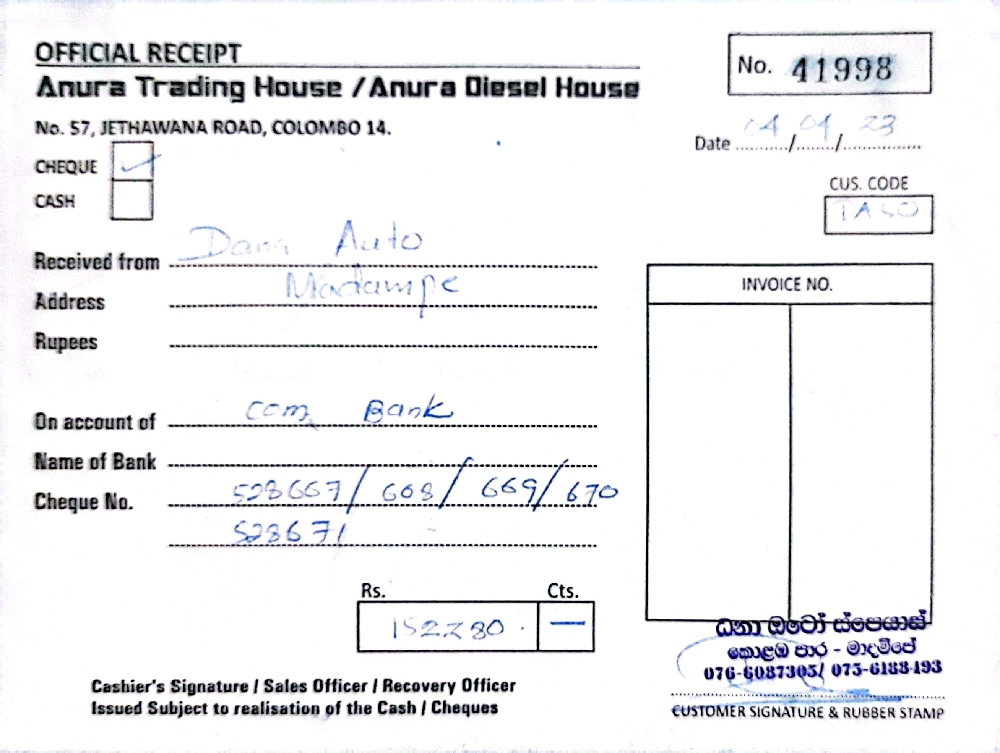 OFFICIAL RECEIPT
No. 41998
Anura Trading House / Anura Diesel House
No. 57, JETHAWANA ROAD, COLOMBO 14.
Date 04/04/23
CHEQUE ✓
CASH
CUS. CODE
Received from Dana Auto
Address Madampe
INVOICE NO.
Rupees
On account of Com Bank
Name of Bank
Cheque No. 528667/ 668/ 669/ 670
528671
Rs. Cts.
152280 . —
ධනා ඔටෝ ස්පෙයාස්
කොළඹ පාර - මාදම්පේ
076-6087305/ 075-6188493
Cashier's Signature / Sales Officer / Recovery Officer
Issued Subject to realisation of the Cash / Cheques
CUSTOMER SIGNATURE & RUBBER STAMP